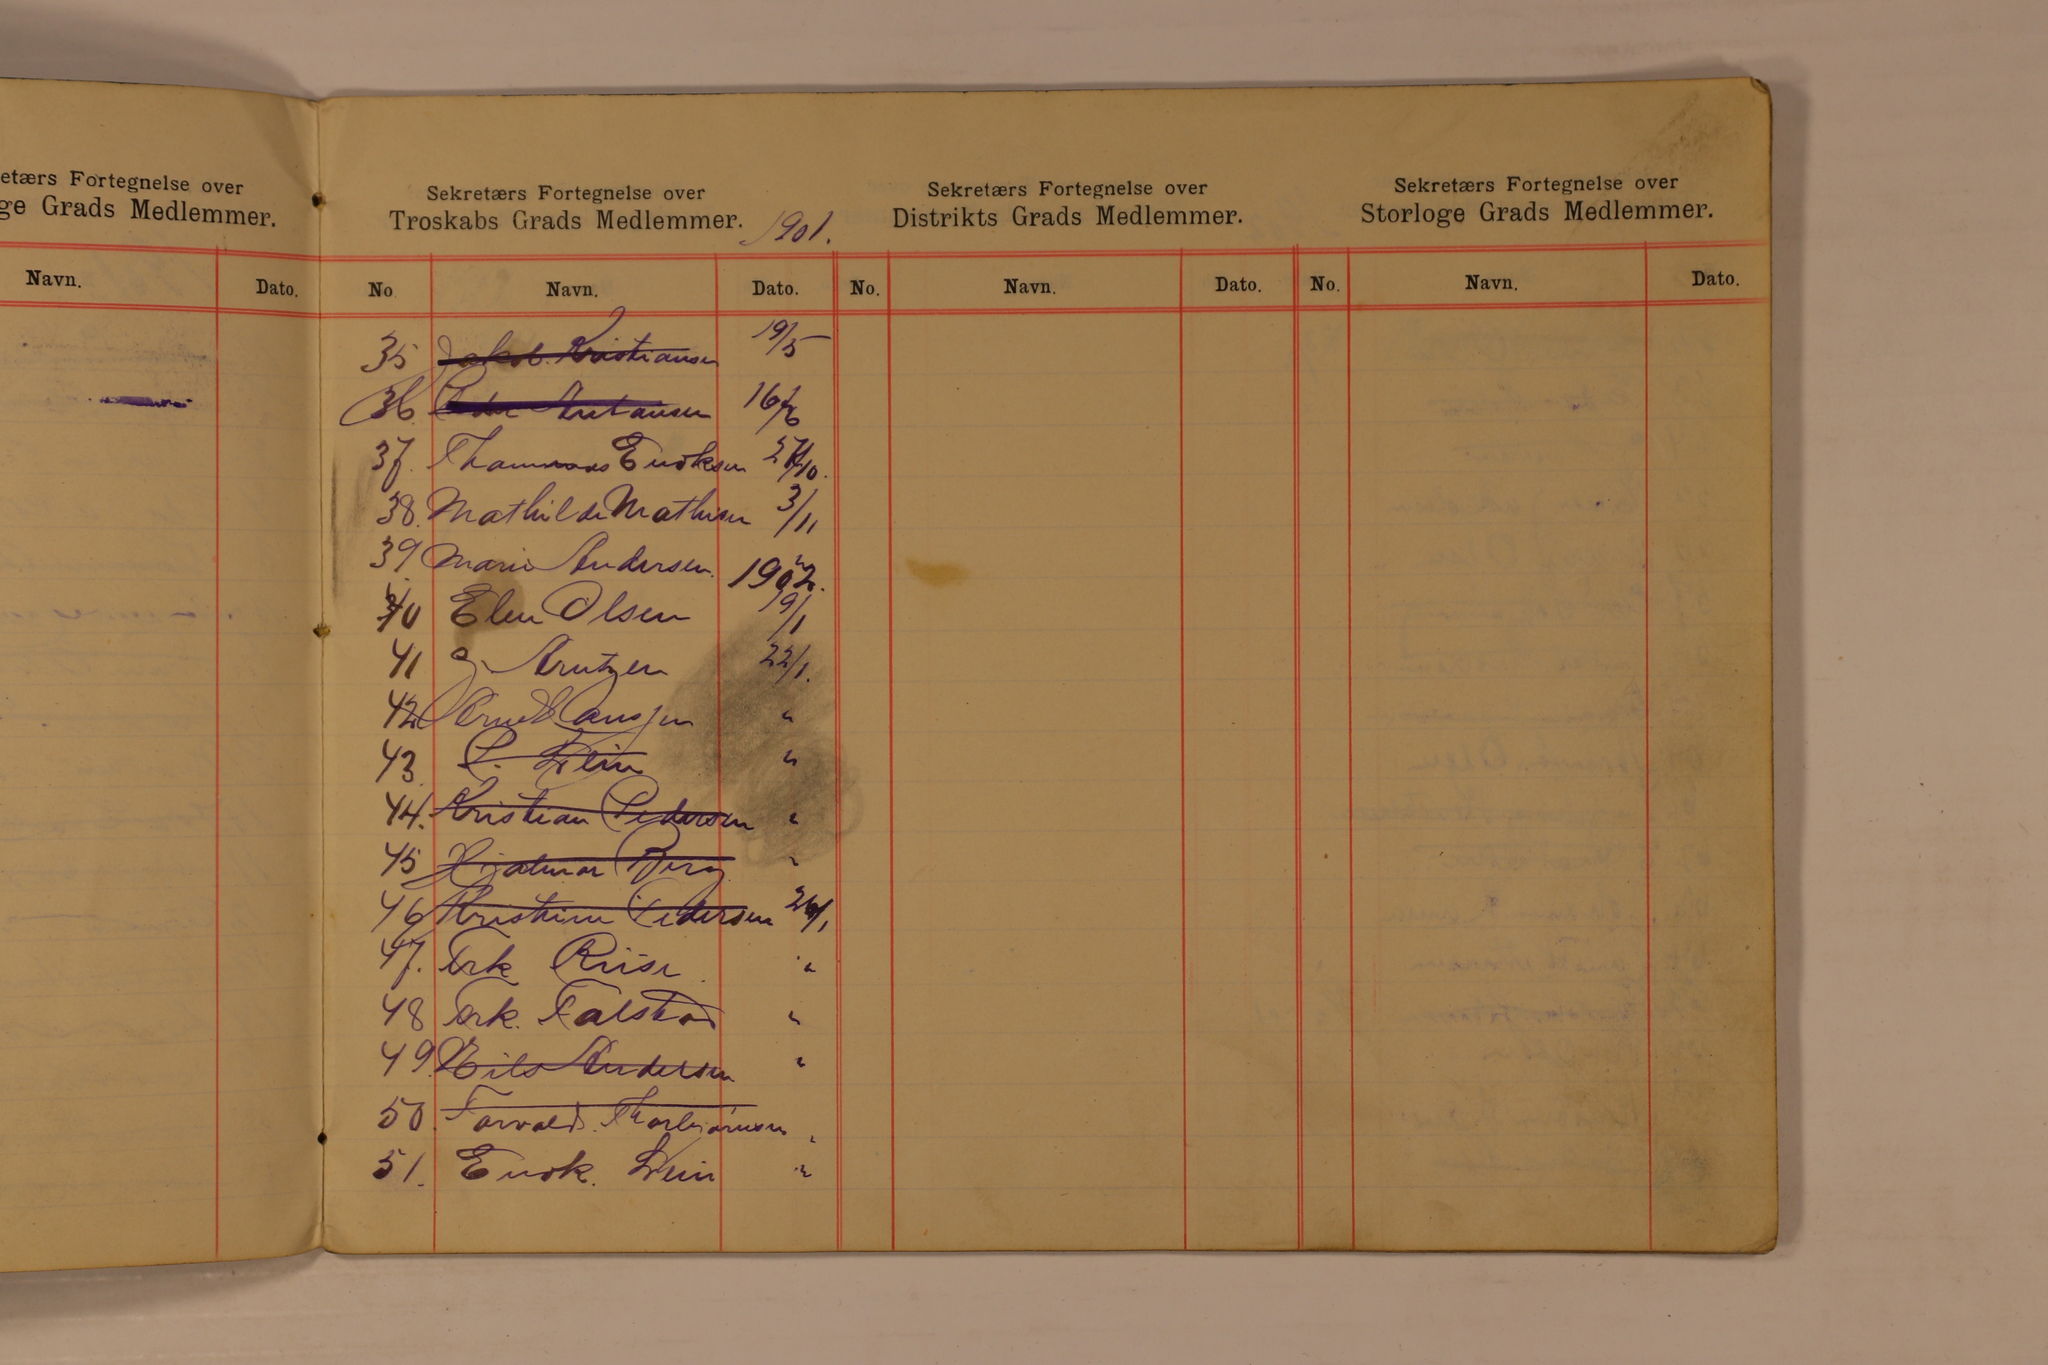 etærs Fortegnelse over
ge Grads Medlemmer.
Navn. Dato.
Sekretærs Fortegnelse over
Troskabs Grads Medlemmer. 1901.
No Navn. Dato.
35 Jakob Kristiansen 19/5
36. Peder 16/6
37. Thammas Enoksen 27/10.
38. Mathilde Mathisen 3/11
39 Marie Andersen. "
1902.
40 Elen Olsen 19/1
41 Arntzen 22/1.
42 "
43 P. "
44. Kristian Pedersen "
45 Hjalmar Berg "
46 Kristine Pedersen 26/1
47. Frk Riise "
48 Frk. Falstad "
49. Nils Andersen "
50 Torvald. Thorbjørnsen "
51. Enok. "
Sekretærs Fortegnelse over
Distrikts Grads Medlemmer.
No. Navn. Dato.
Sekretærs Fortegnelse over
Storloge Grads Medlemmer.
No. Navn. Dato.